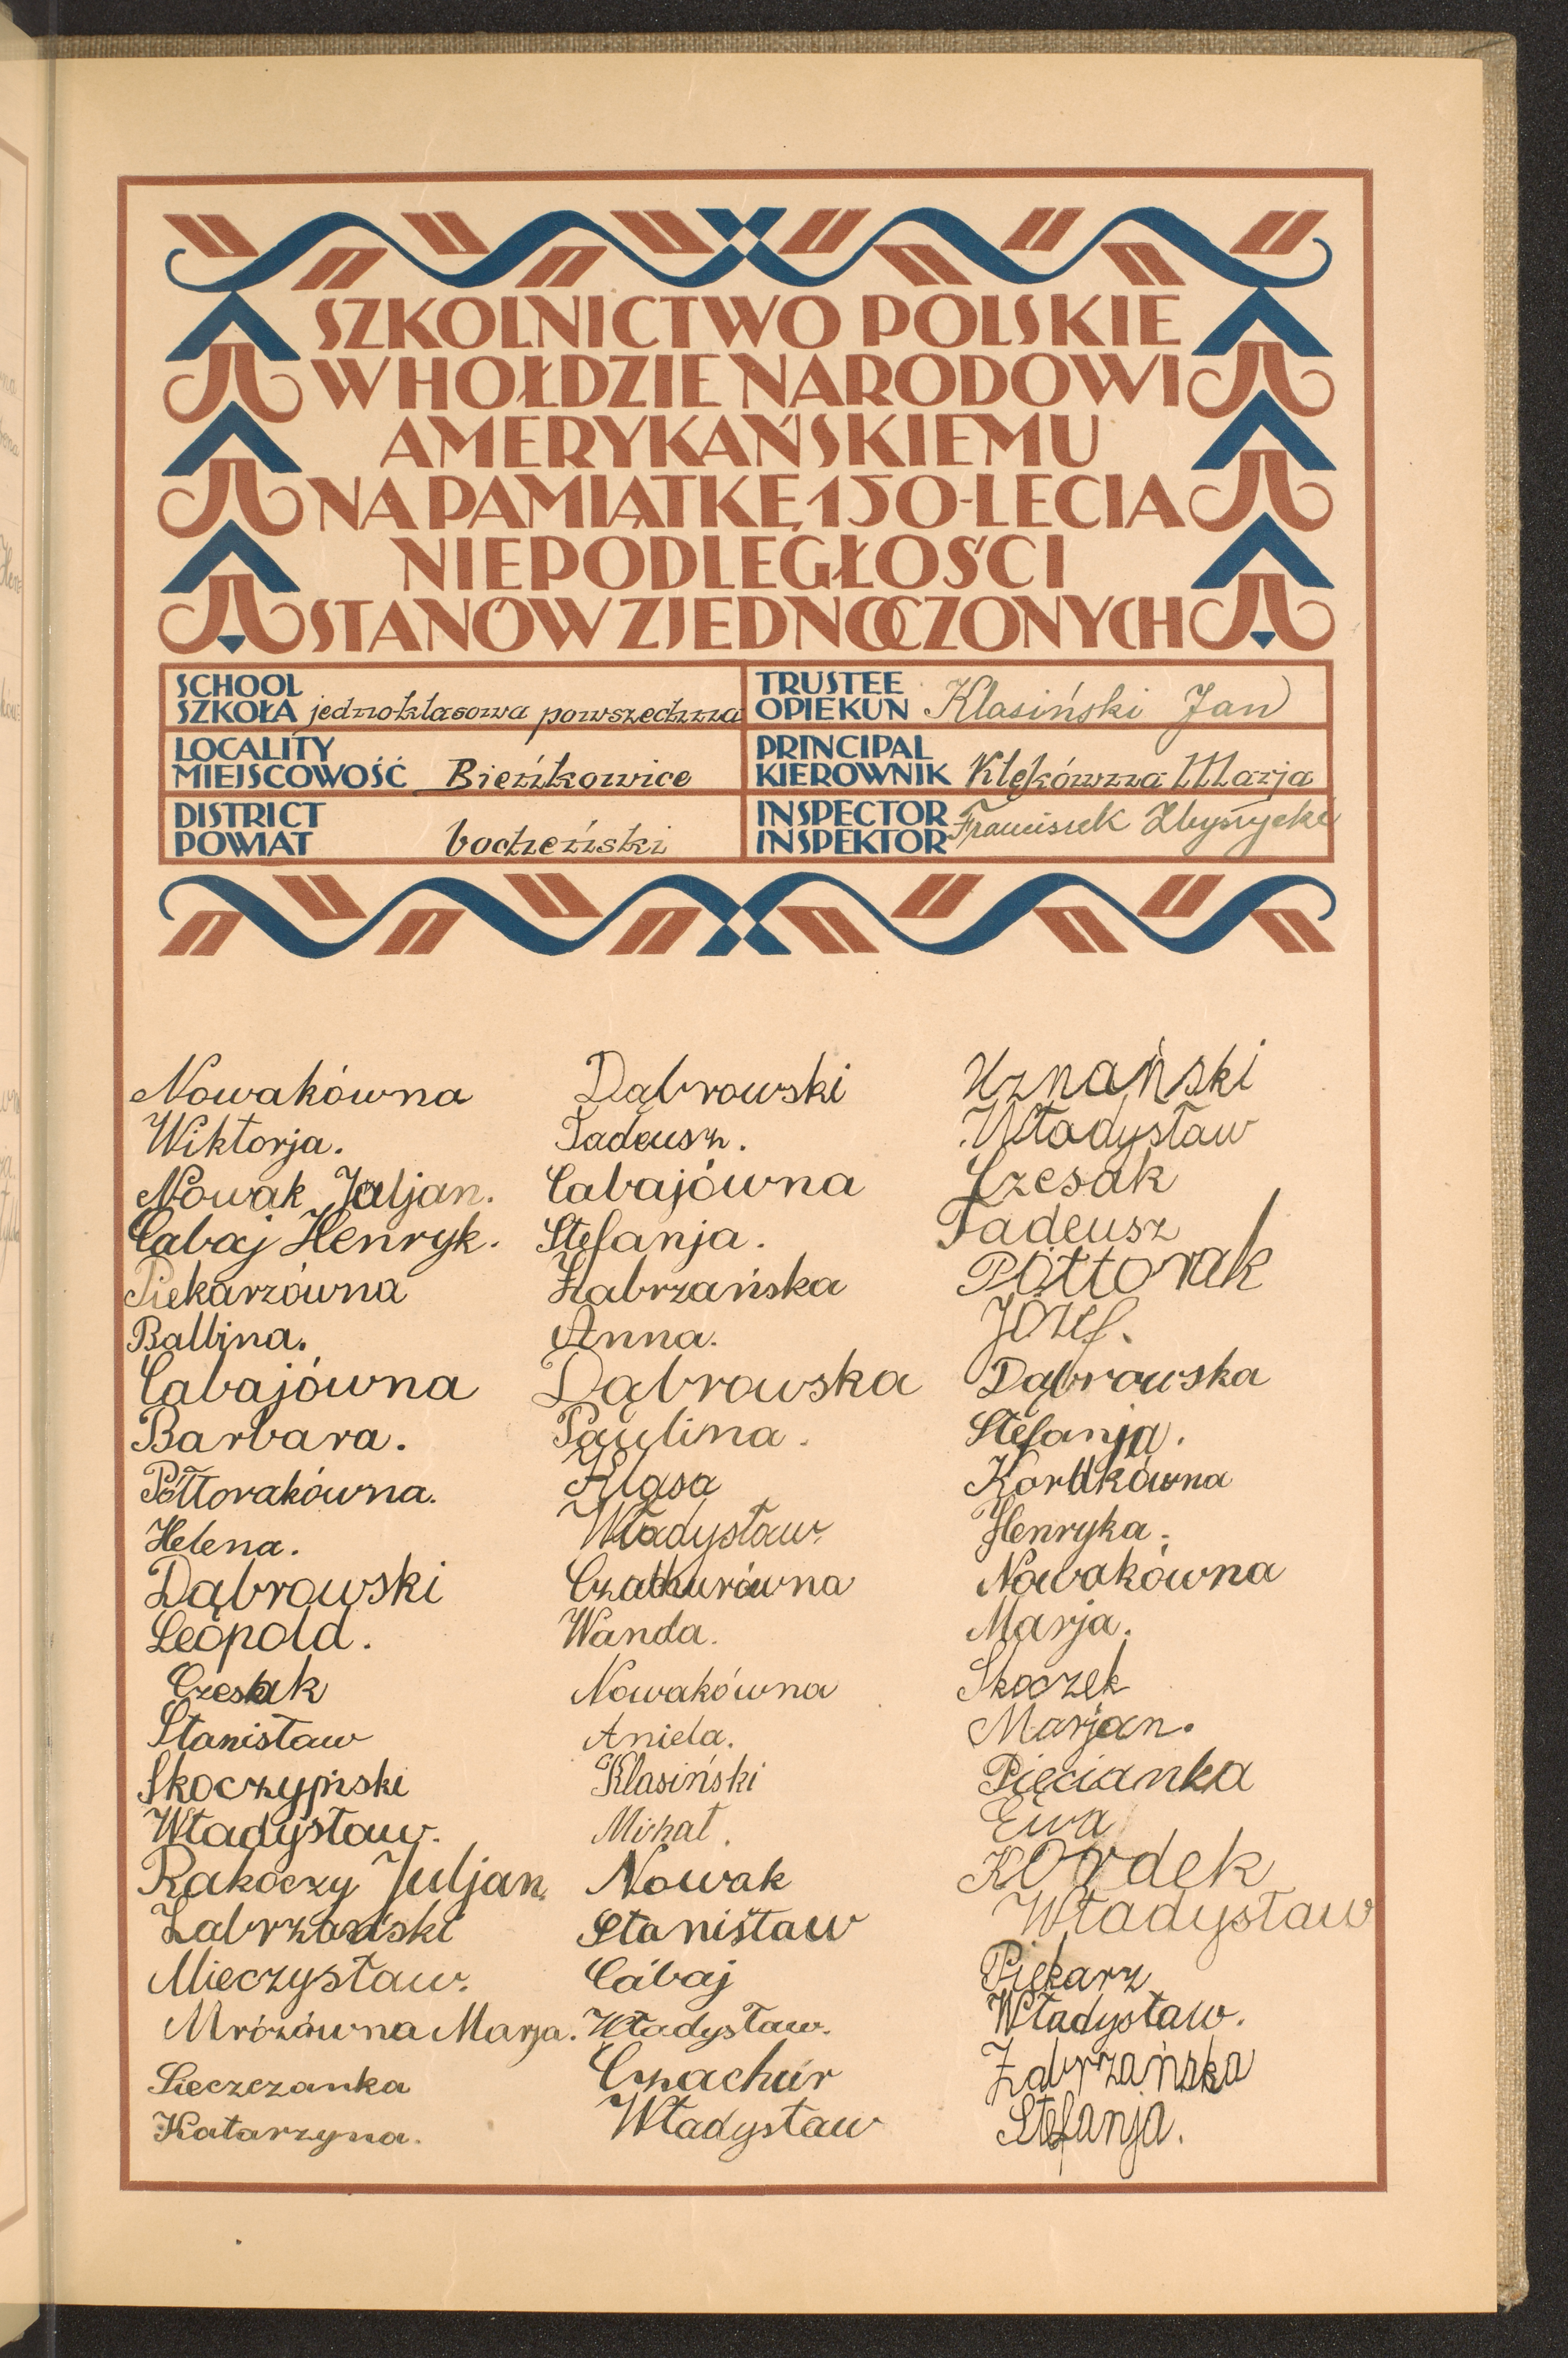 SZKOLNICTWO POLSKIE
W HOŁDZIE NARODOWI
AMERYKAŃSKIEMU
NA PAMIĄTKĘ 150-LECIA
NIEPODLEGŁOŚCI
STANÓW ZJEDNOCZONYCH
SCHOOL
SZKOŁA jednoklasowa powszechna
TRUSTEE
OPIEKUN Klasiński Jan
LOCALITY
MIEJSCOWOŚĆ Bieńkowice
PRINCIPAL
KIEROWNIK Klękówna Marja
DISTRICT
POWIAT bocheński
INSPECTOR
INSPEKTOR Franciszek
Nowakówna
Wiktorja.
Nowak Juljan.
Cabaj Henryk.
Piekarzówna
Balbina.
Cabajówna
Barbara.
Półtorakówna.
Helena.
Dąbrowski
Leopold.
Czesak
Stanisław
Skoczyński
Władysław.
Rakoczy Juljan.
Zabrzański
Mieczysław.
Mrózówna Marja.
Sieczczanka
Katarzyna.
Dąbrowski
Tadeusz.
Cabajówna
Stefanja.
Zabrzańska
Anna.
Dąbrowska
Paulina.
Klasa
Władysław
Czachurówna
Wanda.
Nowakówna
Aniela.
Klasiński
Michał.
Nowak
Stanisław
Cabaj
Władysław.
Czachur
Władysław
Uznański
Władysław
Czesak
Tadeusz
Półtorak
Józef.
Dąbrowska
Stefanja.
Kordkówna
Henryka.
Nowakówna
Marja.
Skoczek
Marjan.
Pięcianka
Ewa
Kordek
Władysław
Piekarz
Władysław.
Zabrzańska
Stefanja.